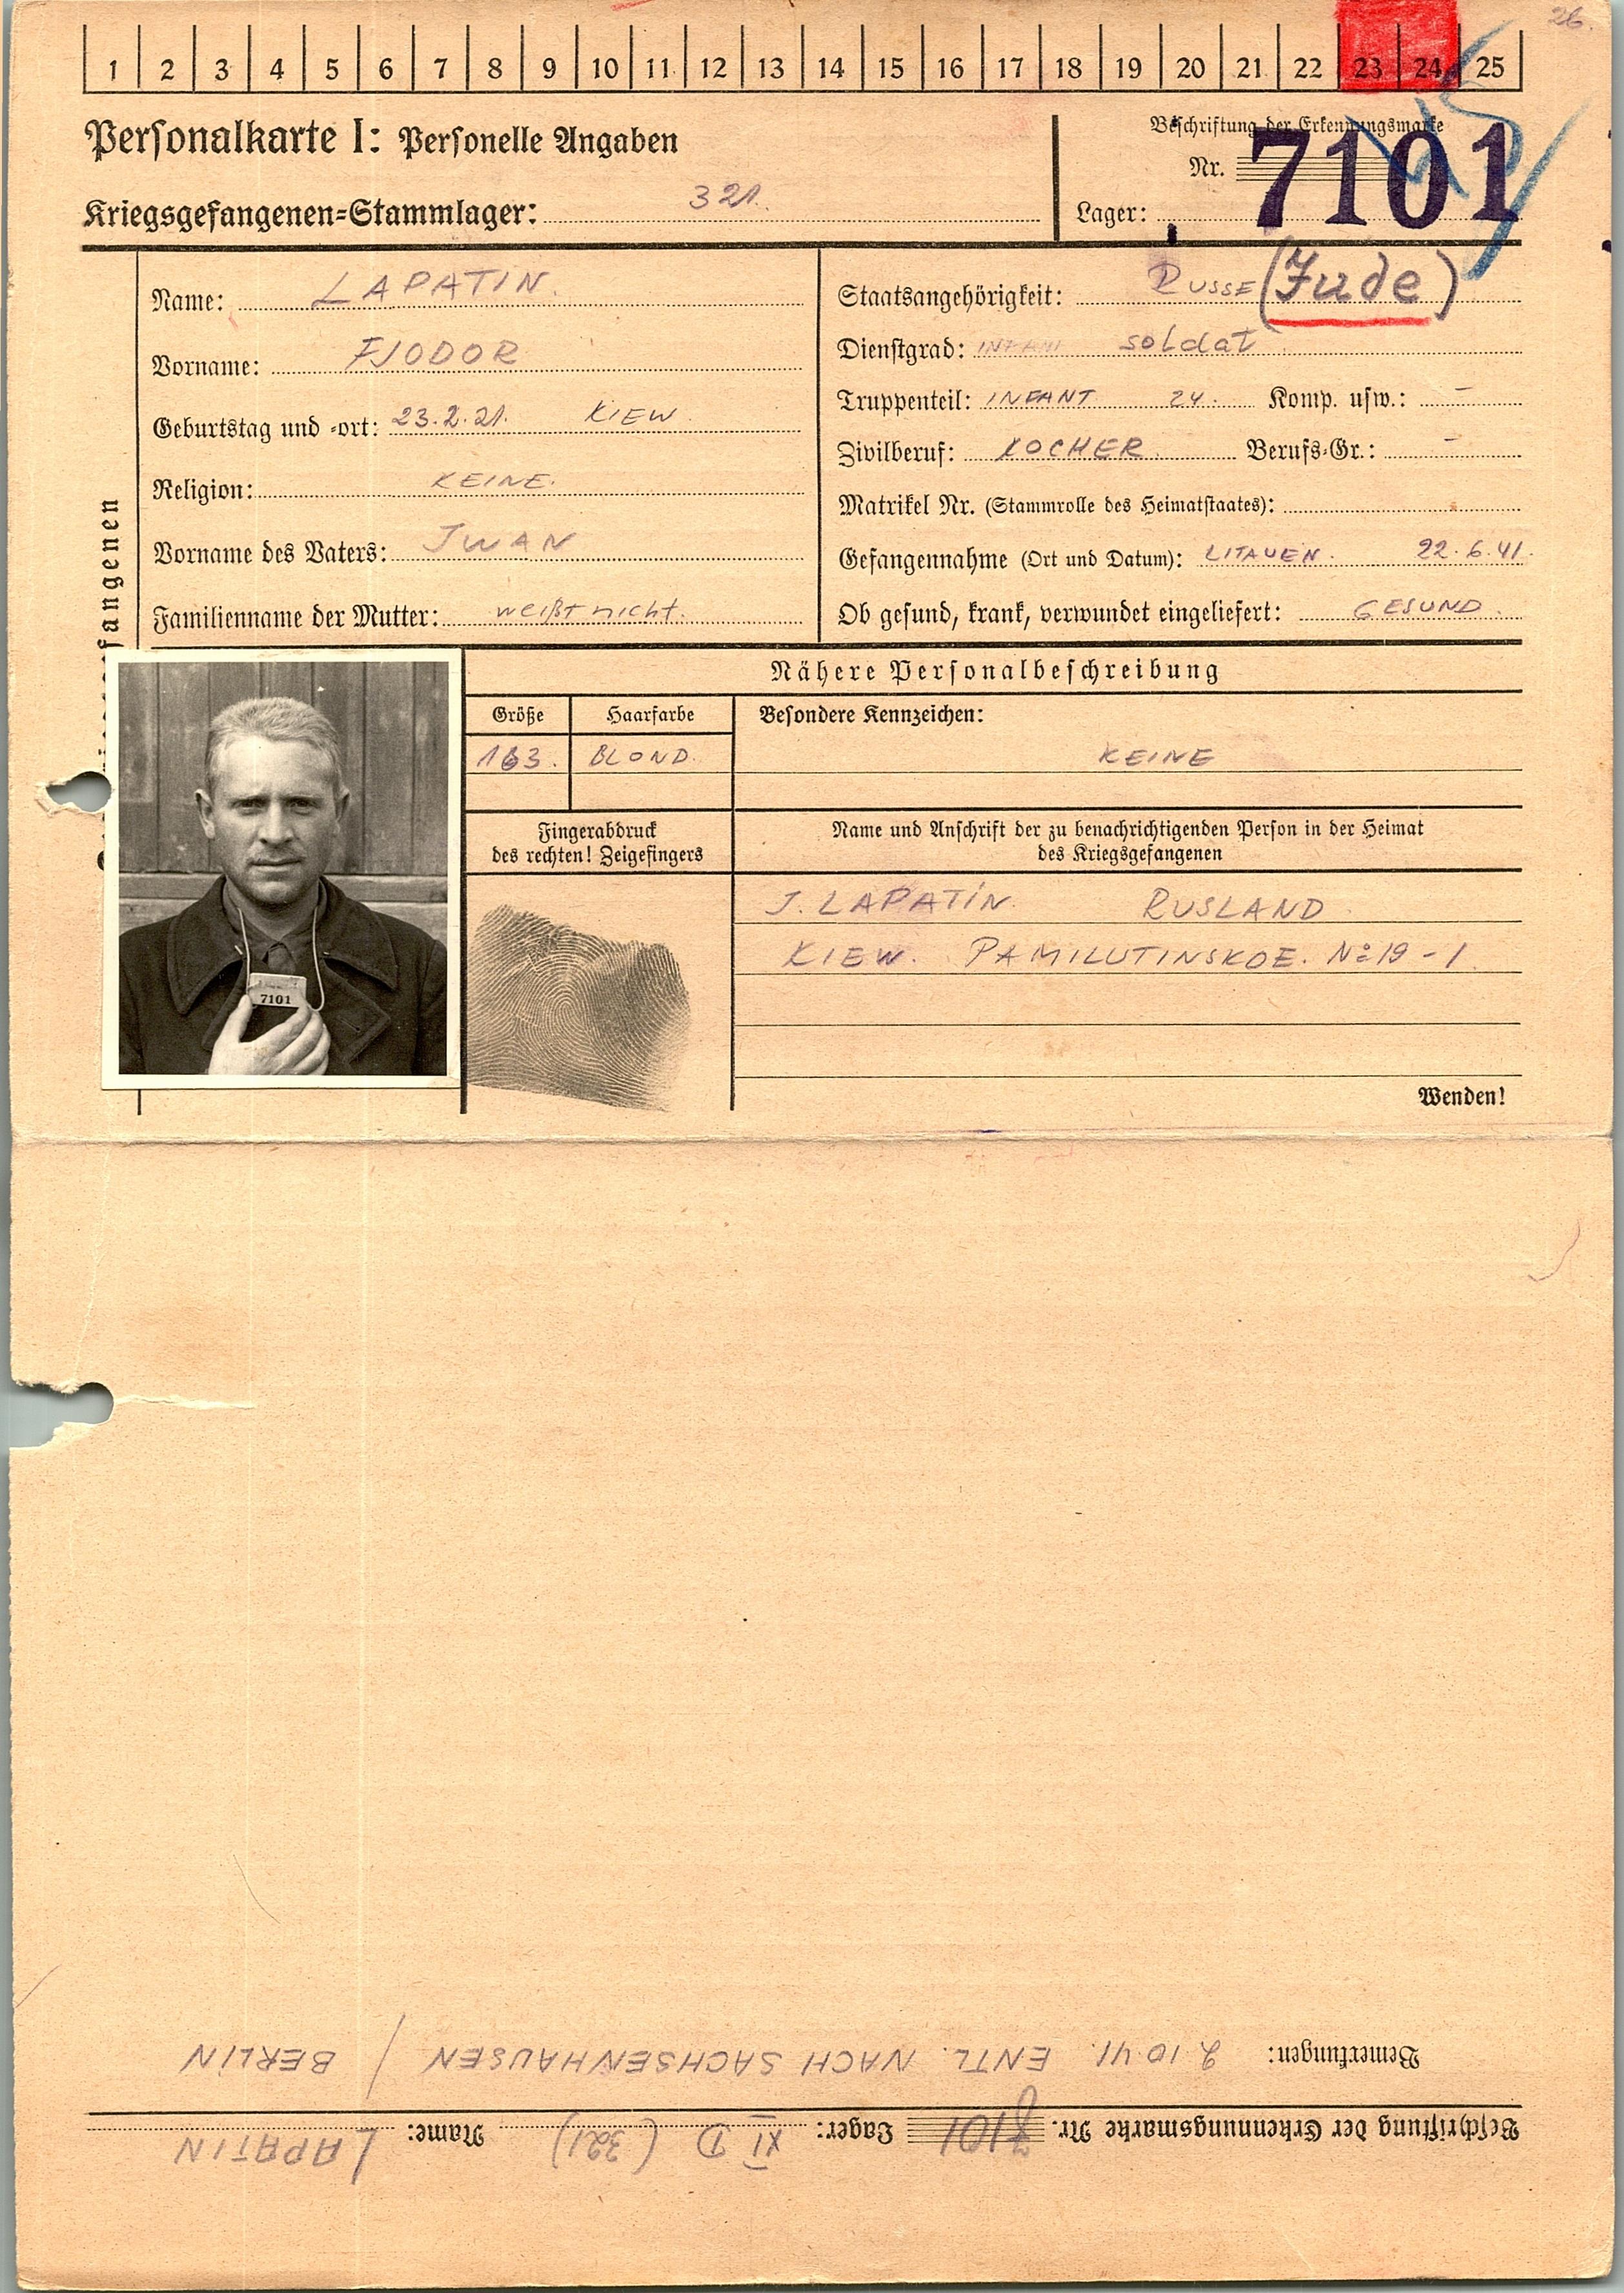 26.
1 2 3 4 5 6 7 8 9 10 11 12 13 14 15 16 17 18 19 20 21 22 23 24 25
Personalkarte I: Personelle Angaben
Kriegsgefangenen-Stammlager: 321.
Beschriftung der Erkennungsmarke
Nr. 7101
Lager:
Name: LAPATIN.
Vorname: FJODOR
Geburtstag und -ort: 23.2.21. KIEW.
Religion: KEINE.
Vorname des Vaters: JWAN
Familienname der Mutter: weißt nicht.
Staatsangehörigkeit: RUSSE (Jude)
Dienstgrad: soldat
Truppenteil: INFANT 24. Komp. usw.: -
Zivilberuf: KOCHER. Berufs-Gr.: -
Matrikel Nr. (Stammrolle des Heimatstaates):
Gefangennahme (Ort und Datum): LITAUEN. 22.6.41.
Ob gesund, krank, verwundet eingeliefert: GESUND.
fangenen
7101
Nähere Personalbeschreibung
Größe Haarfarbe Besondere Kennzeichen:
163. BLOND. KEINE
Fingerabdruck
des rechten! Zeigefingers
Name und Anschrift der zu benachrichtigenden Person in der Heimat
des Kriegsgefangenen
J. LAPATIN. RUSLAND.
KIEW. PAMILUTINSKOE. No 19-1.
Wenden!
Beschriftung der Erkennungsmarke Nr. 7101 Lager: XI D (321) Name: LAPATIN
Bemerkungen: 9.10.41. ENTL. NACH SACHSENHAUSEN / BERLIN